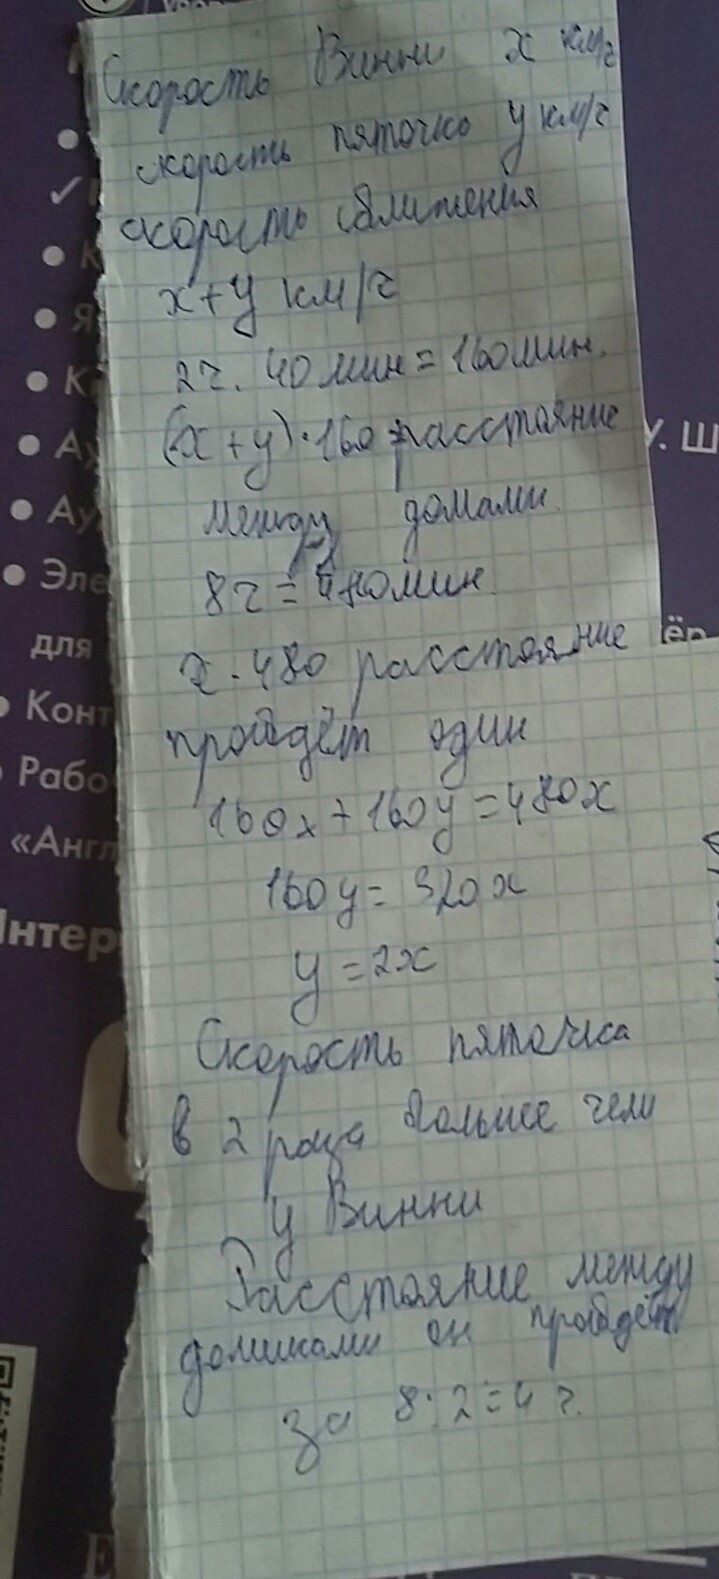 Скорость Винни x км/ч
скорость пяточко y км/ч
скорость сближения
x+y км/ч
2ч. 40 мин = 160 мин.
(x+y)·160 расстояние
между домами.
8ч = 480 мин.
x·480 расстояние
пройдёт один
160x+160y=480x
160y=320x
y=2x
Скорость пяточка
в 2 раза больше чем
у Винни
Расстояние между
домиками он пройдёт
за 8:2=4 ч.
Эле
для
Конт
Рабо
«Англ
Интер
У. Ш
Ау